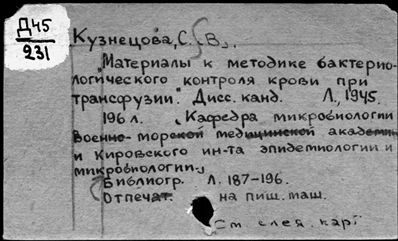 Д45
231
Кузнецова, С. В.
"Материалы к методике бактерио-
логического контроля крови при
трансфузии". Дисс. канд. Л., 1945.
196 л. "Кафедра микробиологии
Военно-морской медицинской академии
и Кировского ин-та эпидемиологии и
микробиологии"
Библиогр. Л. 187-196.
Отпечат. на пиш. маш.
См. след. карт